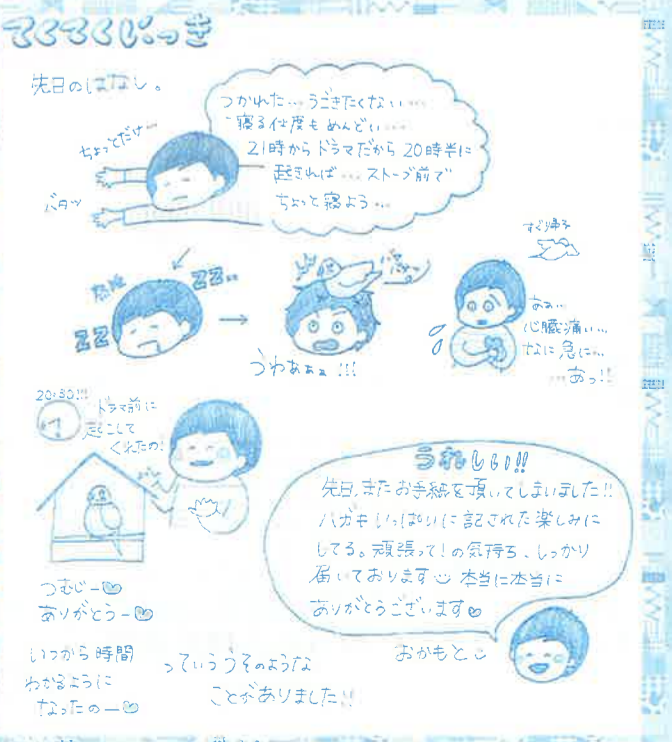 てくてくにっき
先日のはなし。
つかれた…うごきたくない…
寝る仕度もめんどい…
21時からドラマだから20時半に
起きれば…ストーブ前で
ちょっと寝よう…
ちょっとだけ…
バタッ
ZZ
ZZ..
うわあぁぁ!!!
すぐり帰る
あぁ…
心臓痛い…
なに急に…
…あっ!!
20:30!!!
ドラマ前に
起こして
くれたの!
つむじー
ありがとうー
いつから時間
わかるように
なったのー
っていううそのような
ことがありました!!
うれしい!!
先日、またお手紙を頂いてしまいました!!
ハガキいっぱいに記された楽しみに
してる。頑張って!の気持ち、しっかり
届いております 本当に本当に
ありがとうございます
おかもと